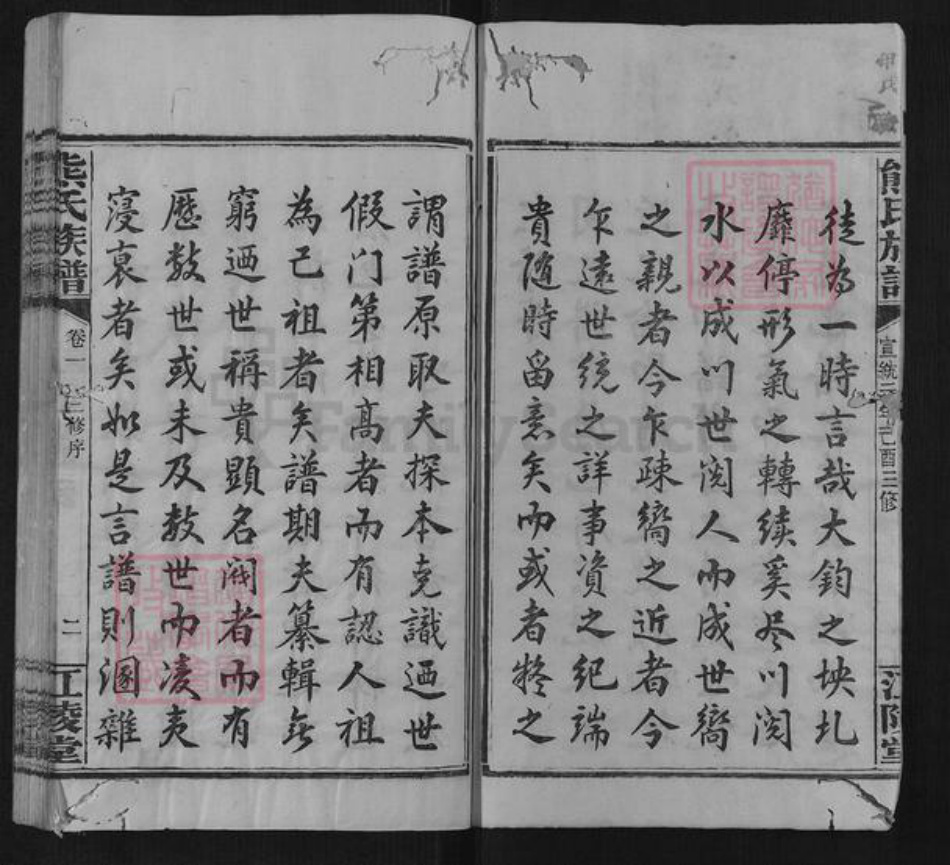 熊氏族譜
宣統元年己酉三修
江陵堂
徒為一時言哉大鈞之坱圠
靡停形氣之轉續奚尽川閱
水以成川世閱人而成世嚮
之親者今乍疎嚮之近者今
乍遠世統之詳事資之紀端
貴随時留意矣而或者擬之
謂譜原取夫探本克識迺世
假门第相高者而有認人祖
為己祖者矣譜期夫纂輯無
窮迺世稱貴顯名閥者而有
歷數世或未及數世而凌夷
寖衰者矣如是言譜則溷雜
熊氏族譜
卷一
三修序
二
江陵堂
FamilySearch